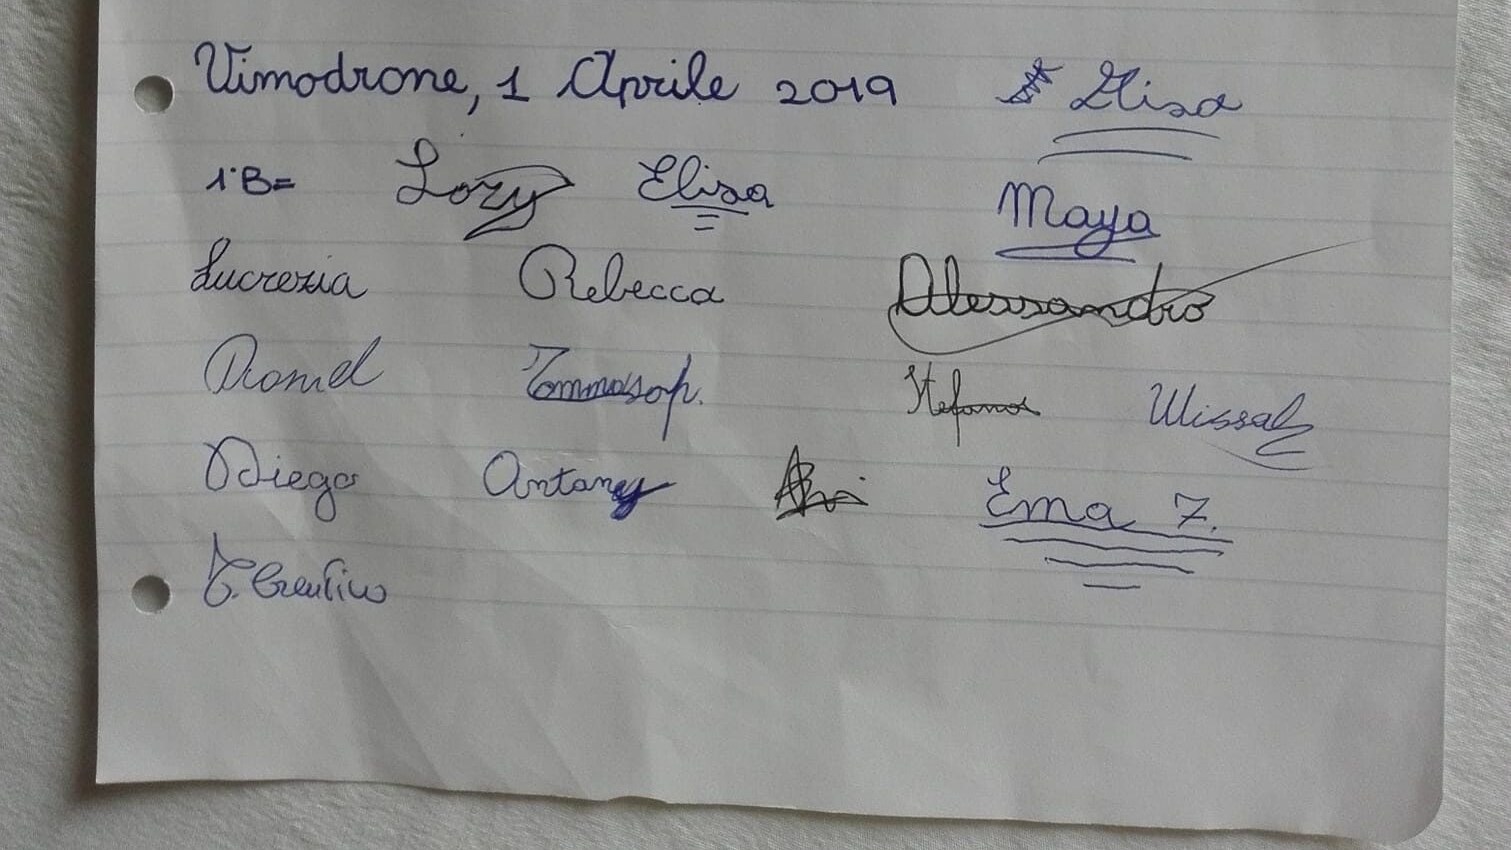 Vimodrone, 1 Aprile 2019 Elisa
1ªB= Lory Elisa Maya
Lucrezia Rebecca Alessandro
Tommaso p. Stefano Wissal
Diego Antony Ema Z.